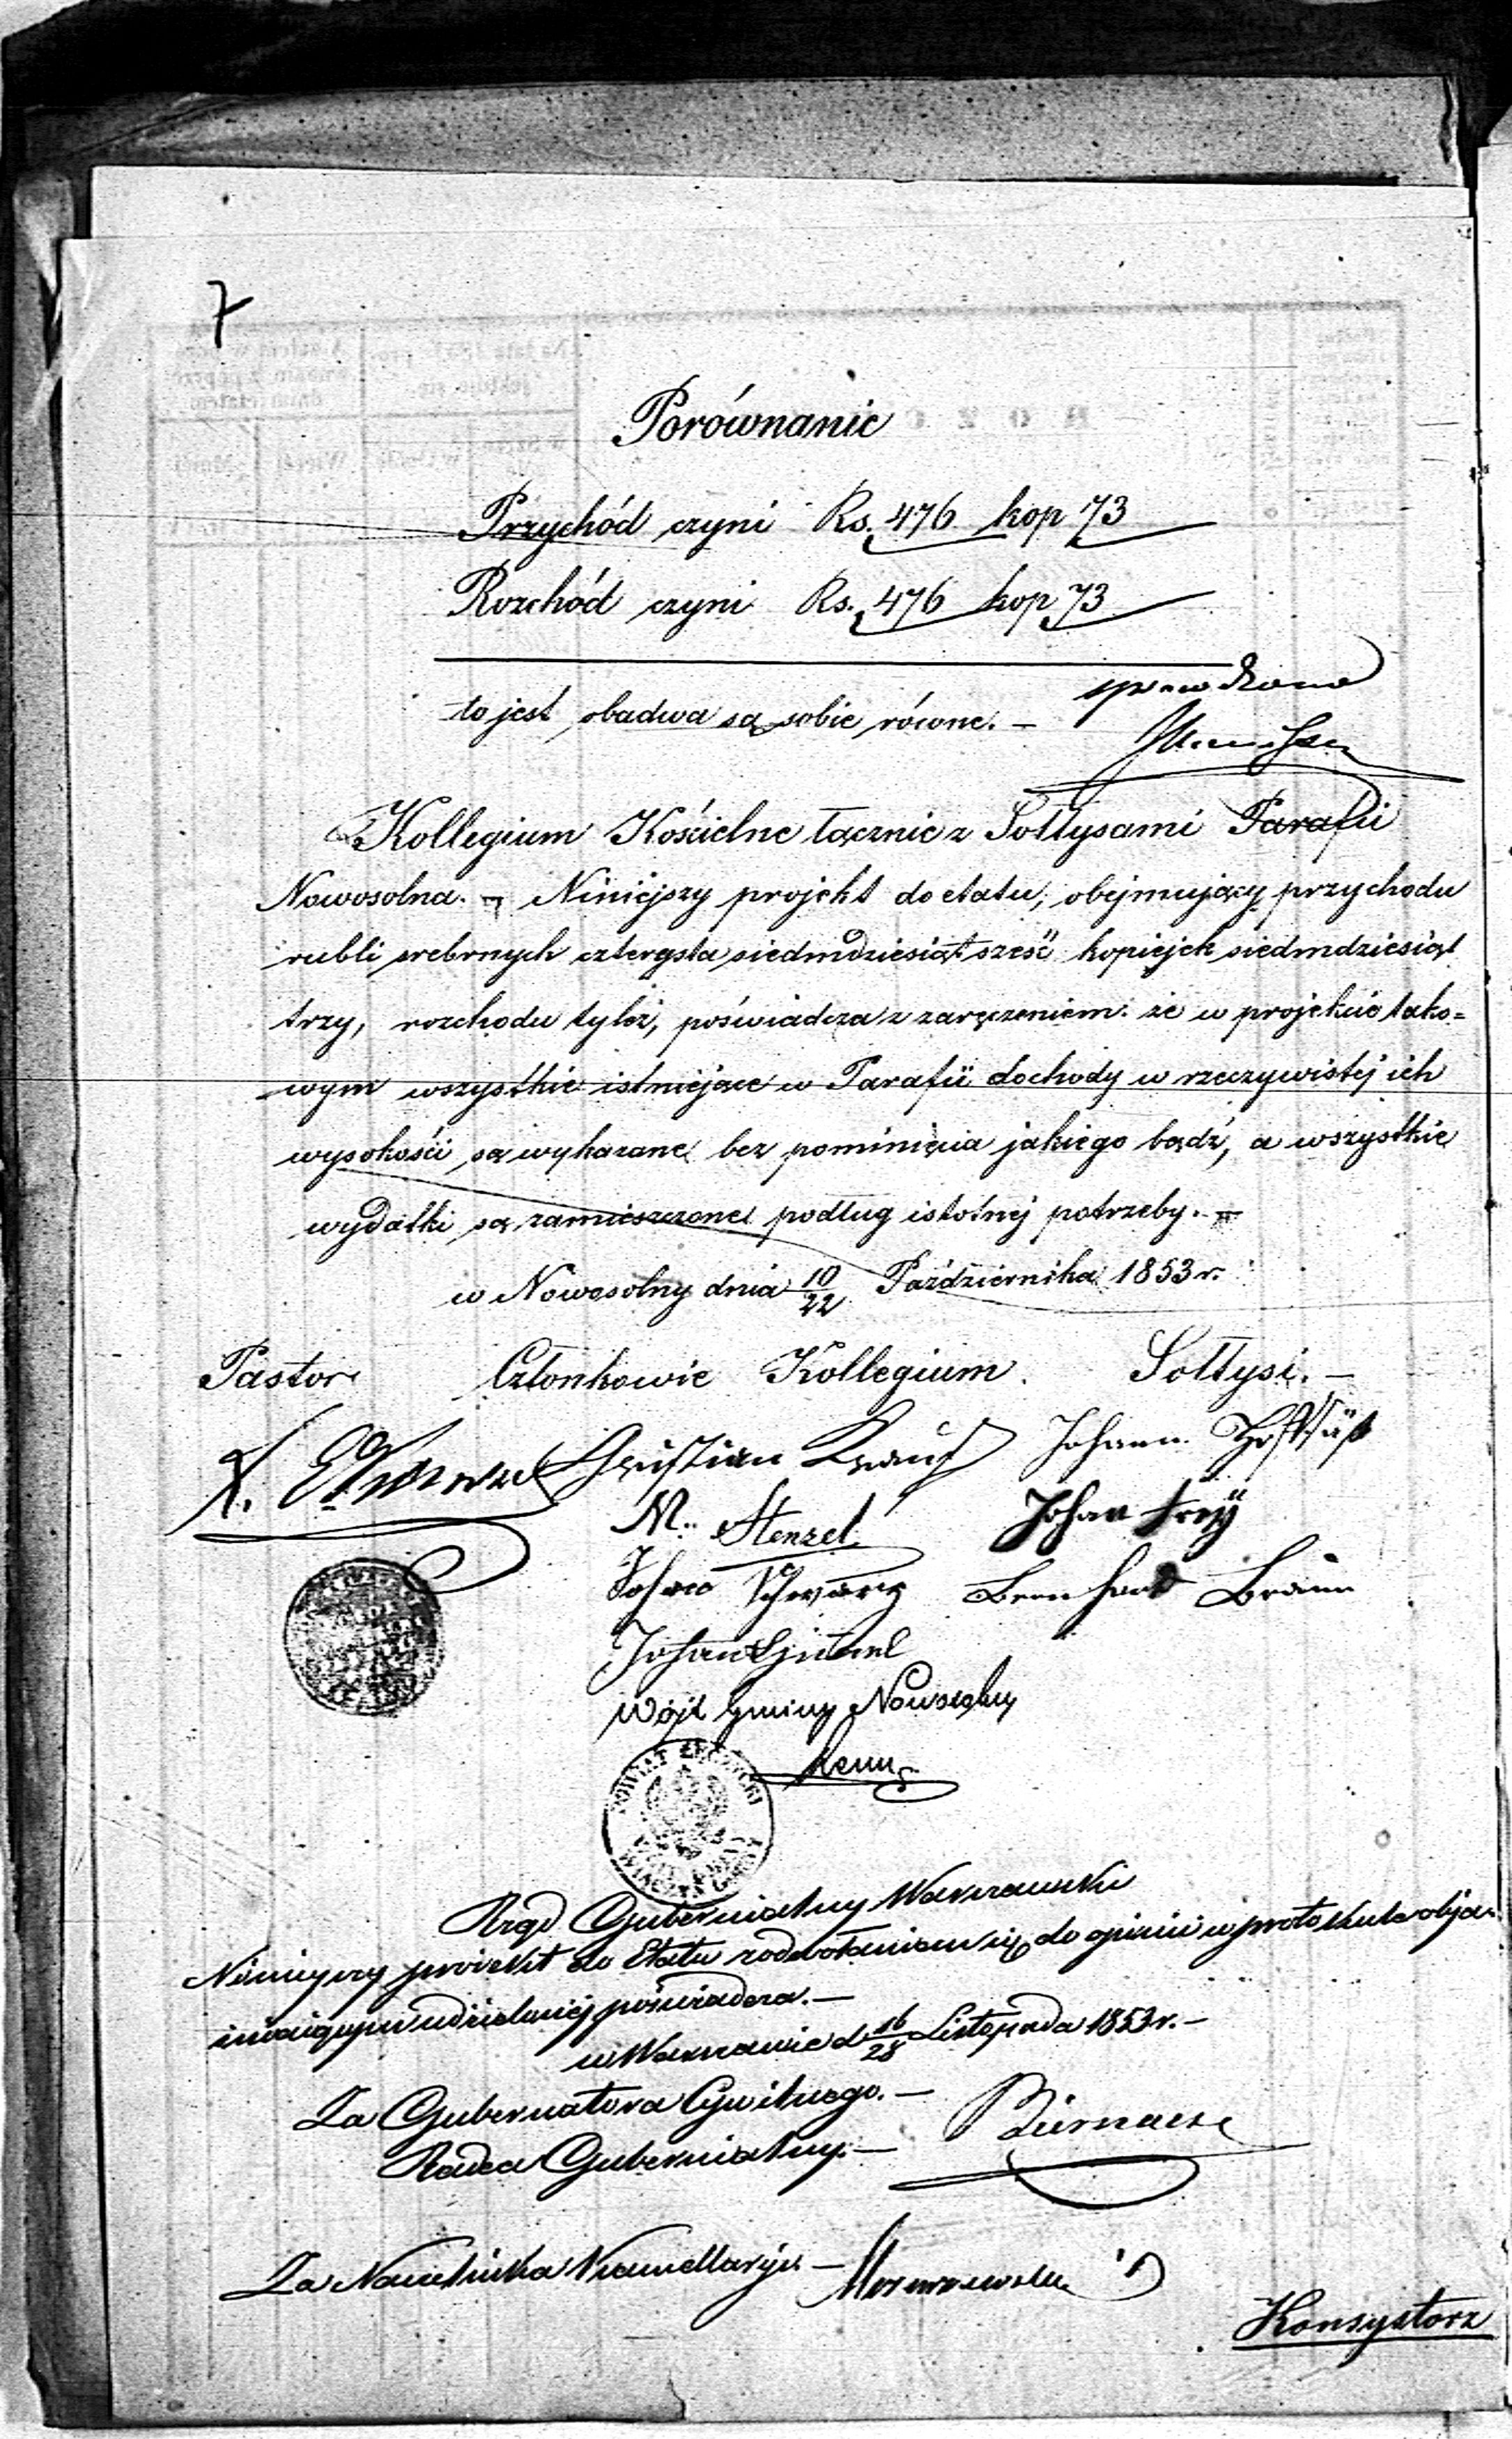 7
Porównanie
Przychód czyni Rs. 476 kop 73
Rozchód czyni Rs. 476 kop 73
sprawdzono
to jest obadwa są sobie równe. —
Kollegium Kościelne łącznie z Sołtysami Parafii
Nowosolna. — Niniejszy projekt do etatu, obejmujący przychodu
rubli srebrnych czterysta siedmdziesiąt sześć kopiejek siedmdziesiąt
trzy, rozchodu tyleż, poświadcza z zaręczeniem. że w projekcie tako=
wym wszystkie istniejące w Parafii dochody w rzeczywistej ich
wysokości są wykazane bez pominięcia jakiego bądź, a wszystkie
wydatki są zamieszczone podług istotnej potrzeby. —
w Nowosolny dnia 10/22 Października 1853 r.
Pastor Członkowie Kollegium. Sołtysi. —
Christian Krauß Johann Hoffsäß
M. Stenzel Johan Frey
Johan Schwarz Bernhard Braun
Johan
Wójt Gminy Nowosolny
POWIAT
Rząd Gubernialny Warszawski
Niniejszy projekt do Etatu z odwołaniem się do opinii w protokule obja-
śniającym udzielonej poświadcza. —
w Warszawie d 16/28 Listopada 1853 r. —
Za Gubernatora Cywilnego. —
Radca Gubernialny. — Biernacki
Za Naczelnika Kancellaryi. —
Konsystorz